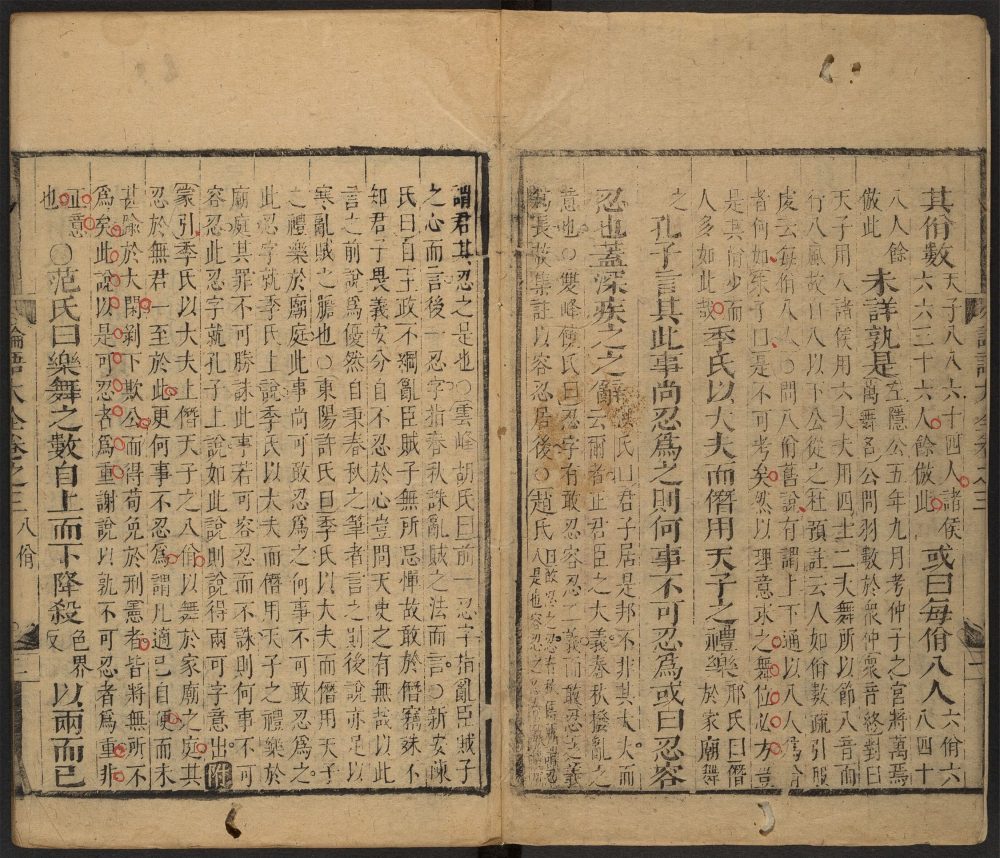 其佾數
天子八八六十四人諸侯
六六三十六人餘倣此
或曰每佾八人
六佾六
八四十
八人餘
倣此
未詳孰是
左隱公五年九月考仲子之宮將萬焉
萬舞名公問羽數於衆仲衆音終對曰
天子用八諸侯用六大夫用四士二夫舞所以節八音而
行八風故自八以下公從之杜預註云人如佾數疏引服
虔云每佾八人○問八佾舊說有謂上下通以八人爲佾
者何如朱子曰是不可考矣然以理意求之舞位必方豈
是其佾少而
人多如此哉
季氏以大夫而僭用天子之禮樂
邢氏曰僭
於家廟舞
之
孔子言其此事尚忍爲之則何事不可忍爲或曰忍容
忍也蓋深疾之之辭
氏曰君子居是邦不非其大夫而
云爾者正君臣之大義春秋撥亂之
意也○雙峰饒氏曰忍字有敢忍容忍二義而敢忍之義
爲長故集註以容忍居後○趙氏
謂君其忍之是也○雲峰胡氏曰前一忍字指亂臣賊子
之心而言後一忍字指春秋誅亂賊之法而言○新安陳
氏曰自王政不綱亂臣賊子無所忌憚故敢於僭竊殊不
知君子畏義安分自不忍於心豈問天吏之有無哉以此
言之前說爲優然自秉春秋之筆者言之則後說亦足以
寒亂賊之膽也○東陽許氏曰季氏以大夫而僭用天子
之禮樂於廟庭此事尚可敢忍爲之何事不可敢忍爲之
此忍字就季氏上說季氏以大夫而僭用天子之禮樂於
廟庭其罪不可勝誅此事若可容忍而不誅則何事不可
容忍此忍字就孔子上說如此說則說得兩可字意出附
蒙引季氏以大夫上僭天子之八佾以舞於家廟之庭其
忍於無君一至於此更何事不忍爲謂凡適己自便而未
甚陷於大閑剝下欺公而得苟免於刑憲者皆將無所不
爲矣此說以是可忍者爲重謝說以孰不可忍者爲重非
正意
也
○范氏曰樂舞之數自上而下降殺
色界
反
以兩而已
論語大全卷之三 八佾 二